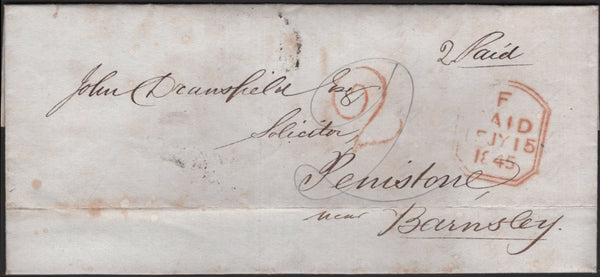 2 Paid
John Dransfield Esq
Solicitor,
2
Penistone,
near Barnsley.
F
AID
JY15
1845